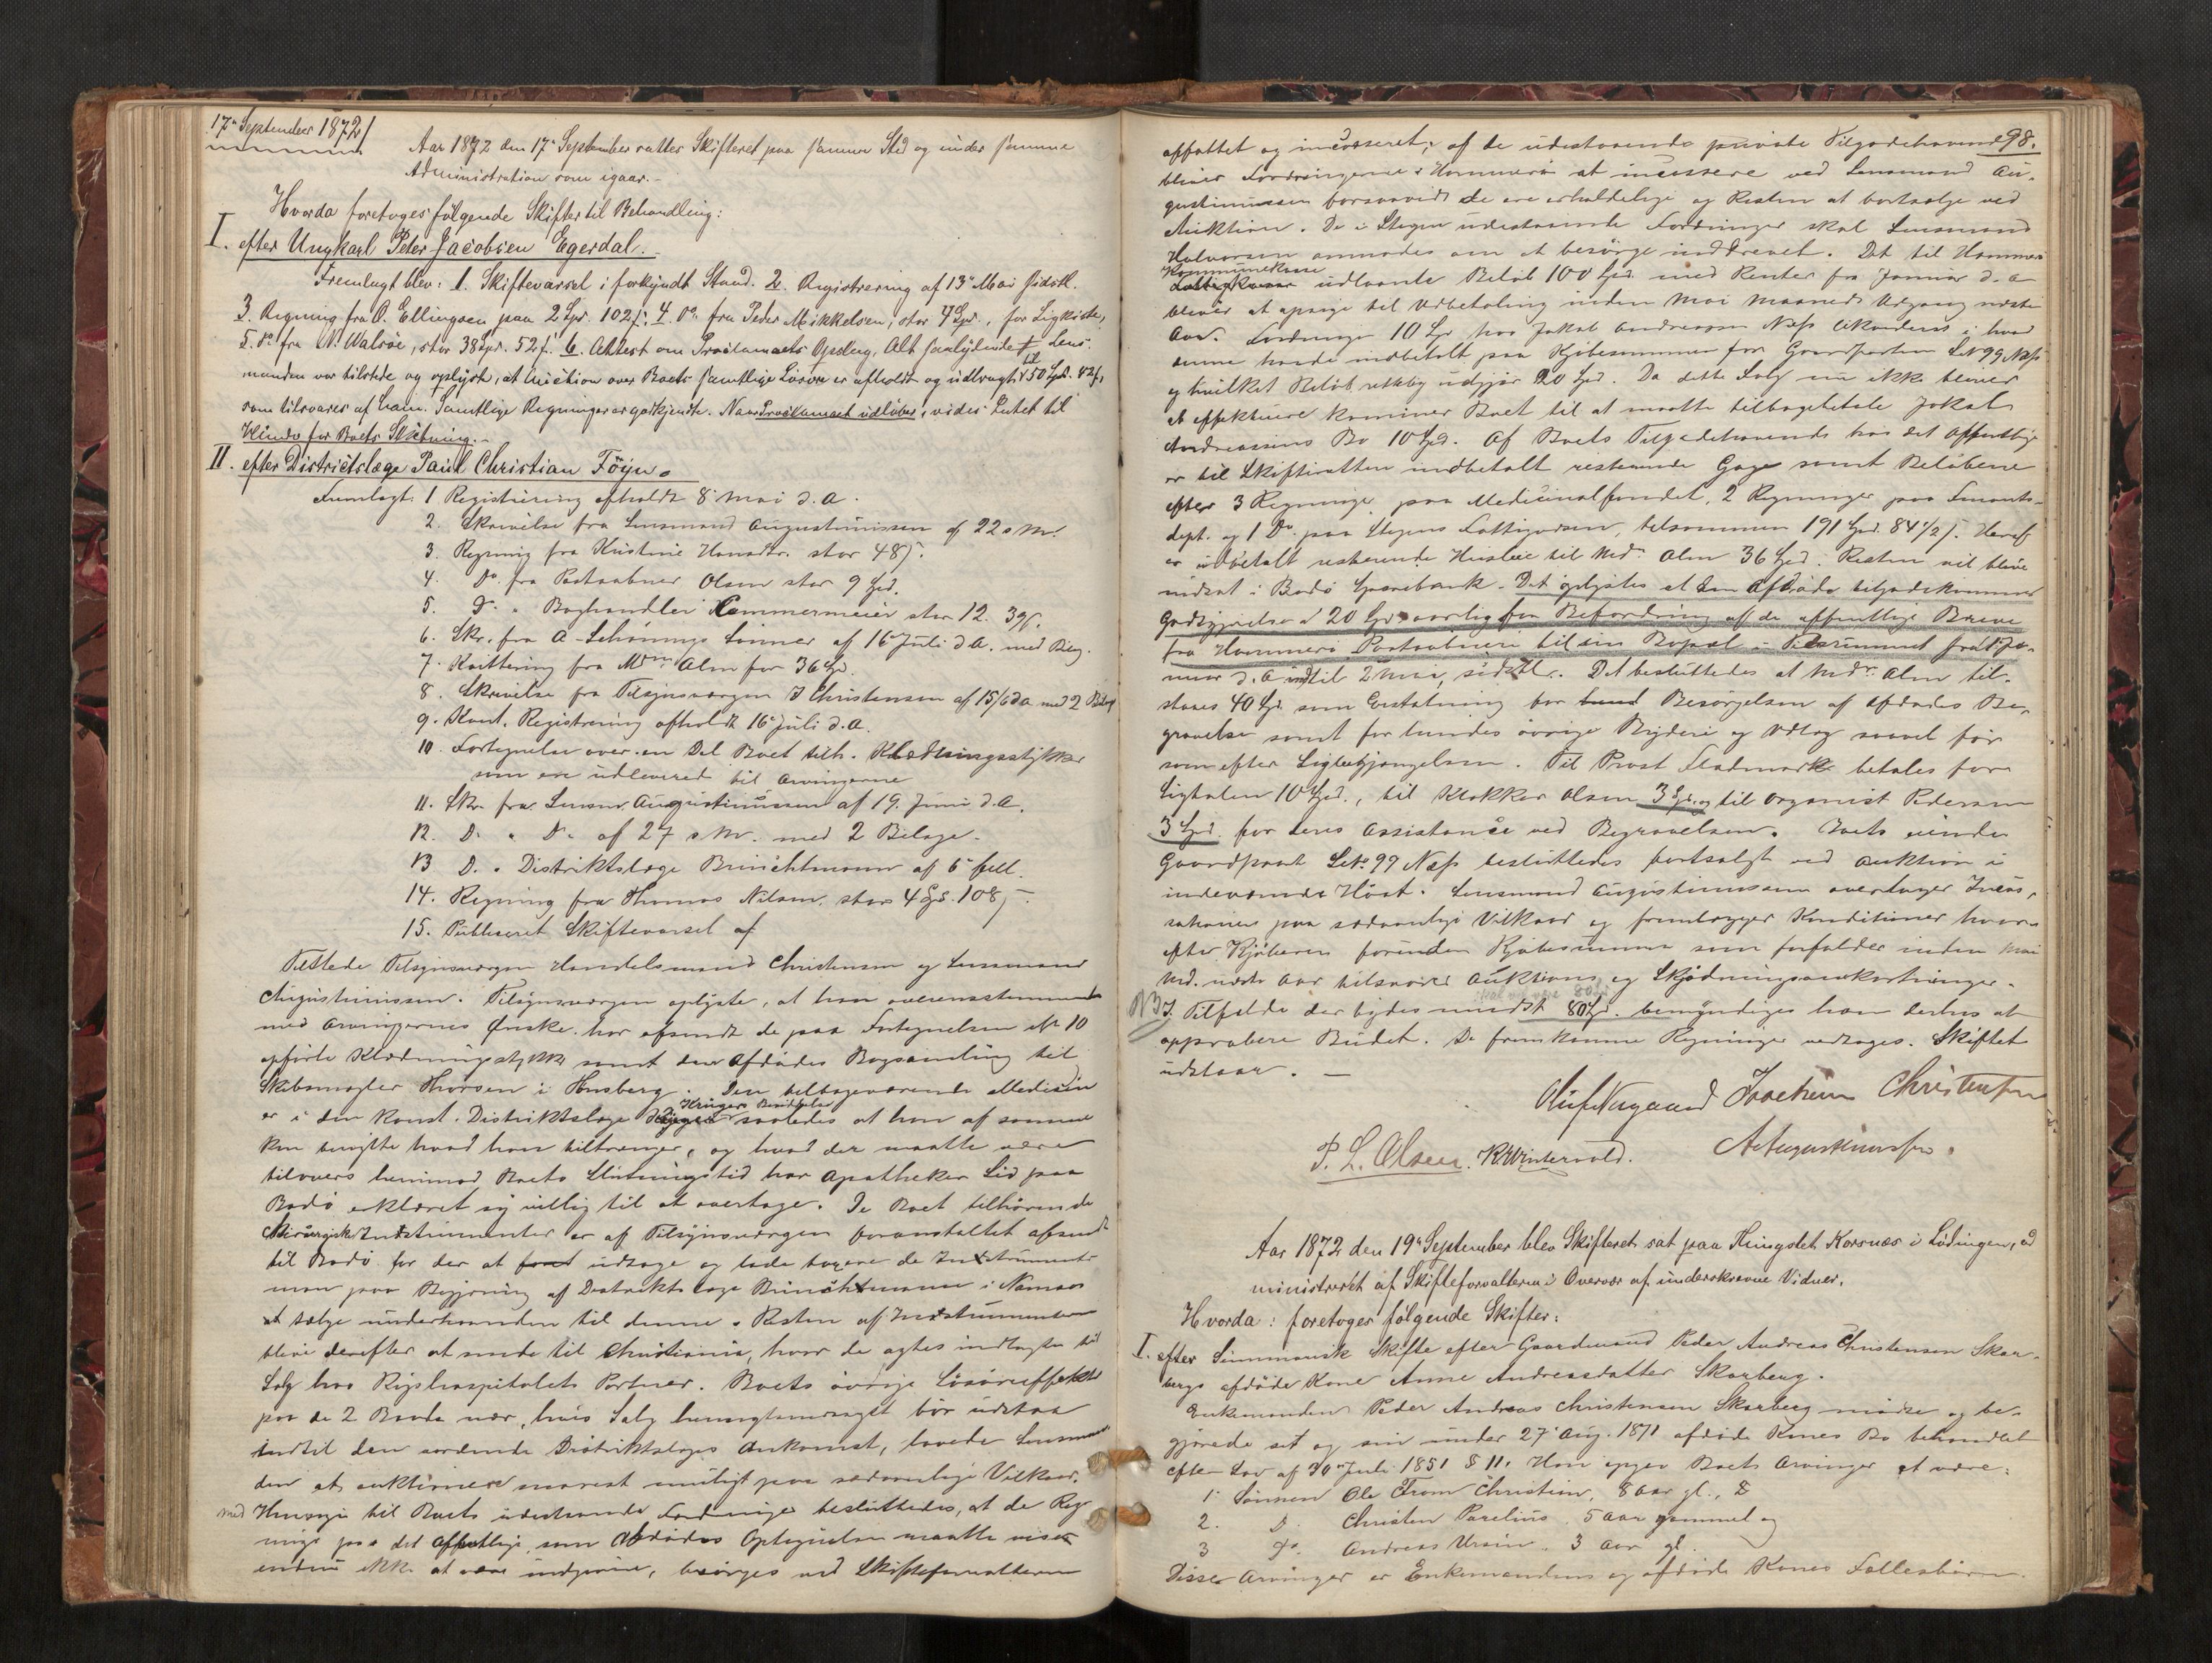 17de September 1872/
Aar 1872 den 17de September sattes Skifteret paa samme Sted og under samme
Administration som igaar.-
Hvorda foretoges følgende Skifter til Behandling:
I. efter Ungkarl Peter Jacobsen Egerdal.
Fremlagt blev: 1. Skiftevarsel i forkyndt Stand. 2. Registrering af 13de Mai sidstl.
3. Regning fra O. Ellingsen paa 2 Spd. 102 s; 4. Do fra Peder Mikkelsen, stor 4 Spd., for Ligkiste,
5. do fra N. Walsöe, stor 38 Spd. 52 s. 6. Attest om Proclamaets Opslag, Alt saalydende Lens-
manden var tilstede og oplyste, at Auction over Boets samtlige Løsøre er afholdt og udbragt til 50 Spd.
som tilsvares af ham. Samtlige Regninger er godkjendte. Naar Proclamaet udløber, vides Intet til
Hinder for Boets Slutning.-
II. efter Districtslæge Paul Christian Föyn.
Fremlagt: 1 Registrering afholdt 8 Mai d. A.
2. Skrivelse fra Lensmand Augustinussen af 22 s M.
3. Regning fra Kristine Hansdtr. stor 48 s.
4. Do fra Postaabner Olsen stor 9 Spd.
5. Do " Boghandler Cammermeier stor 12. 39 s.
6. Skr. fra A Schönings Sönner af 16 Juli d A. med Bilag.
7. Kvittering fra Mdm Alm for 36 Spd.
8. Skrivelse fra Tilsynsværgen J Christensen af 15/6 d a med 2 Bilag
9. Kont. Registrering afholdt 16 Juli d. A.
10. Fortegnelse over en Del Boet tilh. Klædningsstykker
som ere udleverede til Arvingerne
11. Skr. fra Lensm. Augustinussen af 19. Juni d. A.
12. D. " D. af 27 s M. med 2 Bilage.
13 D. " Distriktslæge Brinchmann af 6
14. Regning fra Thomas Nilsen. stor 4 Spd. 108 s.
15. Publiceret Skiftevarsel af
Tilstede Tilsynsværgen Handelsmand Christensen og Lensmand
Augustinussen. Tilsynsværgen oplyste, at han overensstemmende
med Arvingernes Ønske har afsendt de paa Fortegnelsen No 10
opførte Klædningsstykker samt den Afdødes Bogsamling til
Skibsmægler Thorsen i Tønsberg. Den tilbageværende Medicin
er i den konst. Distriktslæge Krügers Besiddelse saaledes at han af samme
kan benytte hvad han tiltrænger, og hvad der maatte være
tilovers henimod Boets Slutningstid har Apotheker Lid paa
Bodö erklæret sig villig til at overtage. De Boet tilhørende
chirurgiske Instrumenter er af Tilsynsværgen foranstaltet afsendt
til Bodö for der at udtage og lade taxere de Instrumenter
man paa Begjæring af Distriktslæge Brinchmann i Namsos
at sælge underhaanden til denne. Resten af Instrumenterne
blive derefter at sende til Christiania, hvor de agtes indlagte til
Salg hos Rigshospitalets Portner. Boets øvrige Løsøreeffekter
paa de 2 Baade nær, hvis Salg bør udstaa
indtil den vordende Distriktslæges Ankomst, lovede Lensman-
den at auktionere snarest muligt paa sædvanlige Vilkaar.
Med Hensyn til Boets udestaaende Fordringer besluttedes, at de Reg-
ninger paa det Offentlige, som Afdødes Optegnelser maatte vise
endnu ikke at være indgivne, besørges ved Skifteforvalteren
298.
affattet og incasseret; af de udestaaende private Tilgodehavende
bliver Fordringerne i Hammerö at incassere ved Lensmand Au-
gustinussen forsaavidt de ere erholdelige og Resten at bortsælge ved
Auktion. De i Stegen udestaaende Fordringer skal Lensmand
Halvorsen anmodes om at besørge inddrevet. Det til Hammerö
Kommunekasse
udlaante Beløb 100 Spd. med Renter fra Januar d. A
bliver at opsige til Udbetaling inden Mai Maaneds Udgang næste
Aar. Fordringen 10 Spd hos Jakob Andreassen Næss likvideres i hvad
denne havde indbetalt paa Kjøbesummen for Gaardparten Lno 99 Næss
og hvilket Beløb rettelig udgjør 20 Spd. Da dette Salg nu ikke bliver
at effektuere kommer Boet til at maatte tilbagebetale Jakob
Andreassens Bo 10 Spd. Af Boets Tilgodehavende hos det Offentlige
er til Skifteretten indbetalt resterende Gage samt Beløbene
efter 3 Regninger paa Medicinalfondet, 2 Regninger paa Finants-
dept. og 1 Do paa Stegens Fattigvæsen, tilsammen 191 Spd. 84 1/2 s. Heraf
er udbetalt resterende Husleie til Mdm Alm 36 Spd. Resten vil blive
indsat i Bodö Sparebank. Det oplystes at den Afdøde tilgodekommer
Godtgjørelse 20 Spd aarlig for Befordring af de offentlige Breve
fra Hammerö Postaabneri til sin Bopæl i Tidsrummet fra 1 Ja-
nuar d. A indtil 2 Mai, sidstl. Det besluttedes at Mdm Alm til-
staaes 40 Spd. som Erstatning for Besørgelsen af Afdødes Be-
gravelse samt for hendes øvrige Bryderi og Udlæg saavel før
som efter Ligbegjængelsen. Til Provst Fladmark betales for
Ligtalen 10 Spd., til Klokker Olsen 3 Spd. og til Organist Pedersen
3 Spd. for deres Assistance ved Begravelsen. Boets eiende
Gaardpart Lno 99 Næss besluttedes bortsolgt ved Auktion i
indeværende Høst. Lensmand Augustinussen overtager Incas-
sationen paa sædvanlige Vilkaar og fremlægger Konditioner hvor-
efter Kjøberen foruden Kjøbesummen som forfalder inden Mai
Md. næste Aar tilsvarer Auktions og Skjødningsomkostninger.
NB I Tilfælde der bydes mindst 80 Spd. bemyndiges han derhos at
approbere Budet. De fremkomne Regninger vedtages. Skiftet
udstaar. —
Oluf Nygaard Joachim Christensen
P. L. Olsen. K Wintervold. A Augustinussen.
Aar 1872 den 19de September blev Skifteret sat paa Thingstedet Korsnæs i Lödingen, ad
ministreret af Skifteforvalteren i Overvær af underskrevne Vidner.
Hvorda: foretoges følgende Skifter:
I. efter Summarisk Skifte efter Gaardmand Peder Andreas Christensen Skar-
bergs afdøde Kone Anne Andreasdatter Skarberg.
Enkemanden Peder Andreas Christensen Skarberg mødte og be-
gjærede sit og sin under 27 Aug. 1871 afdøde Kones Bo behandlet
efter Lov af 30te Juli 1851 § 11. Han opgav Boets Arvinger at være:
1. Sønnen Ole From Christian, 8 Aar gl.,
2. D. Christen Parelius 5 Aar gammel og
3 Do. Andreas Ursin. 3 Aar gl.
Disse Arvinger er Enkemandens og afdøde Kones Fællesbørn.